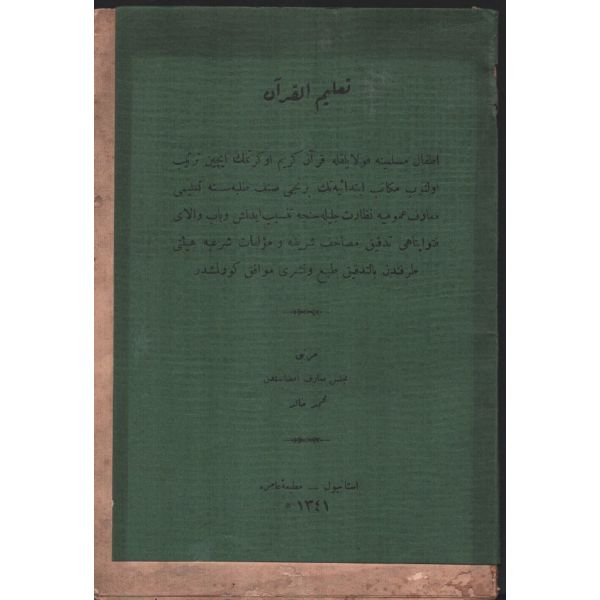 تعليم القرآن
اطفال مسلمينه قولايلقله قرآن كريم اوكرتمك ايچين ترتيب
اولنوب مكاتب ابتدائيه‌نك برنجى صنف طلبه‌سنه تعليمى
معارف عموميه نظارت جليله‌سنجه تنسيب ايدلمش وباب والاى
فتواپناهى تدقيق مصاحف شريفه و مؤلفات شرعيه هيئتى
طرفندن بالتدقيق طبع ونشرى موافق كورلمشدر
مرتبى
مجلس معارف اعضاسندن
محمد خالد
استانبول — مطبعهٔ عامره
١٣٤١